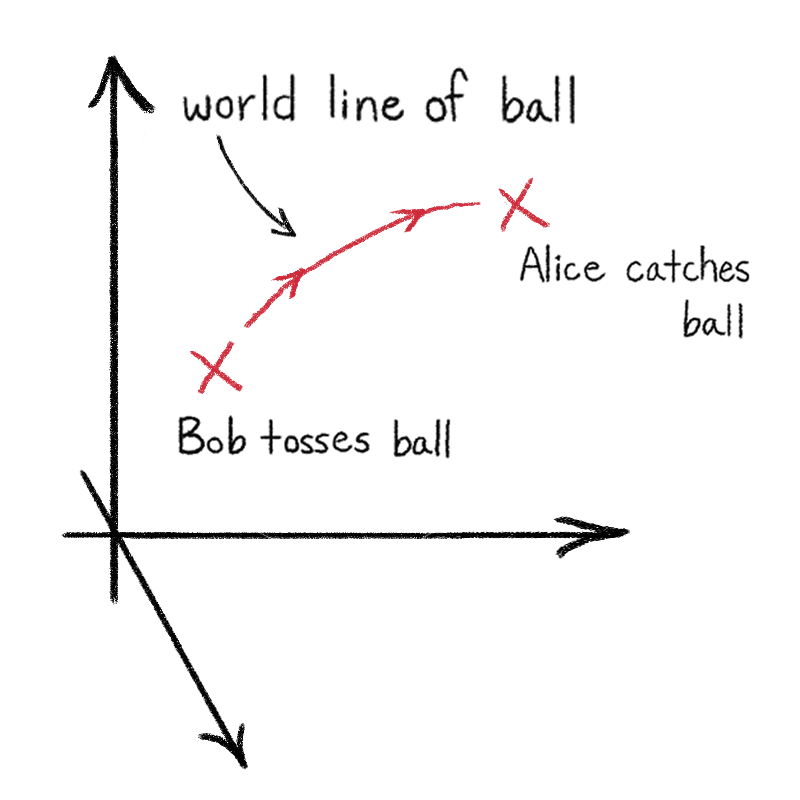 world line of ball
Alice catches
ball
Bob tosses ball